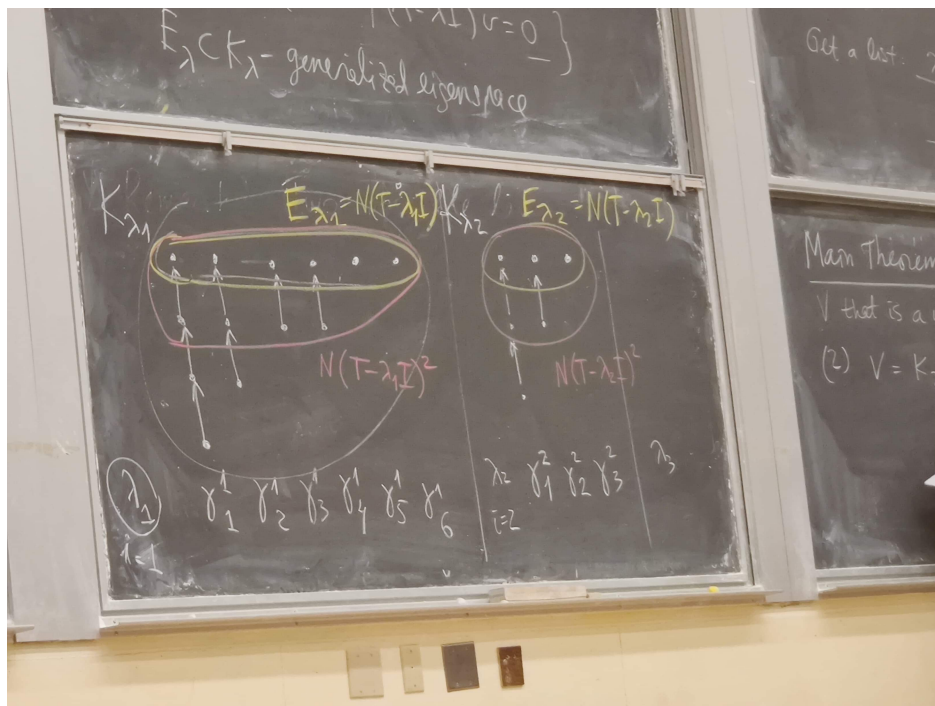 (T-λI)v=0}
E_λ ⊂ K_λ - generalized eigenspace
Get a list:
K_λ₁ E_λ₁=N(T-λ₁I) K_λ₂ E_λ₂=N(T-λ₂I)
N(T-λ₁I)² N(T-λ₂I)²
λ₁ γ₁¹ γ₂¹ γ₃¹ γ₄¹ γ₅¹ γ₆¹ λ₂ γ₁² γ₂² γ₃² λ₃
i=1 i=2
Main Theorem
V that is a
(2) V = K